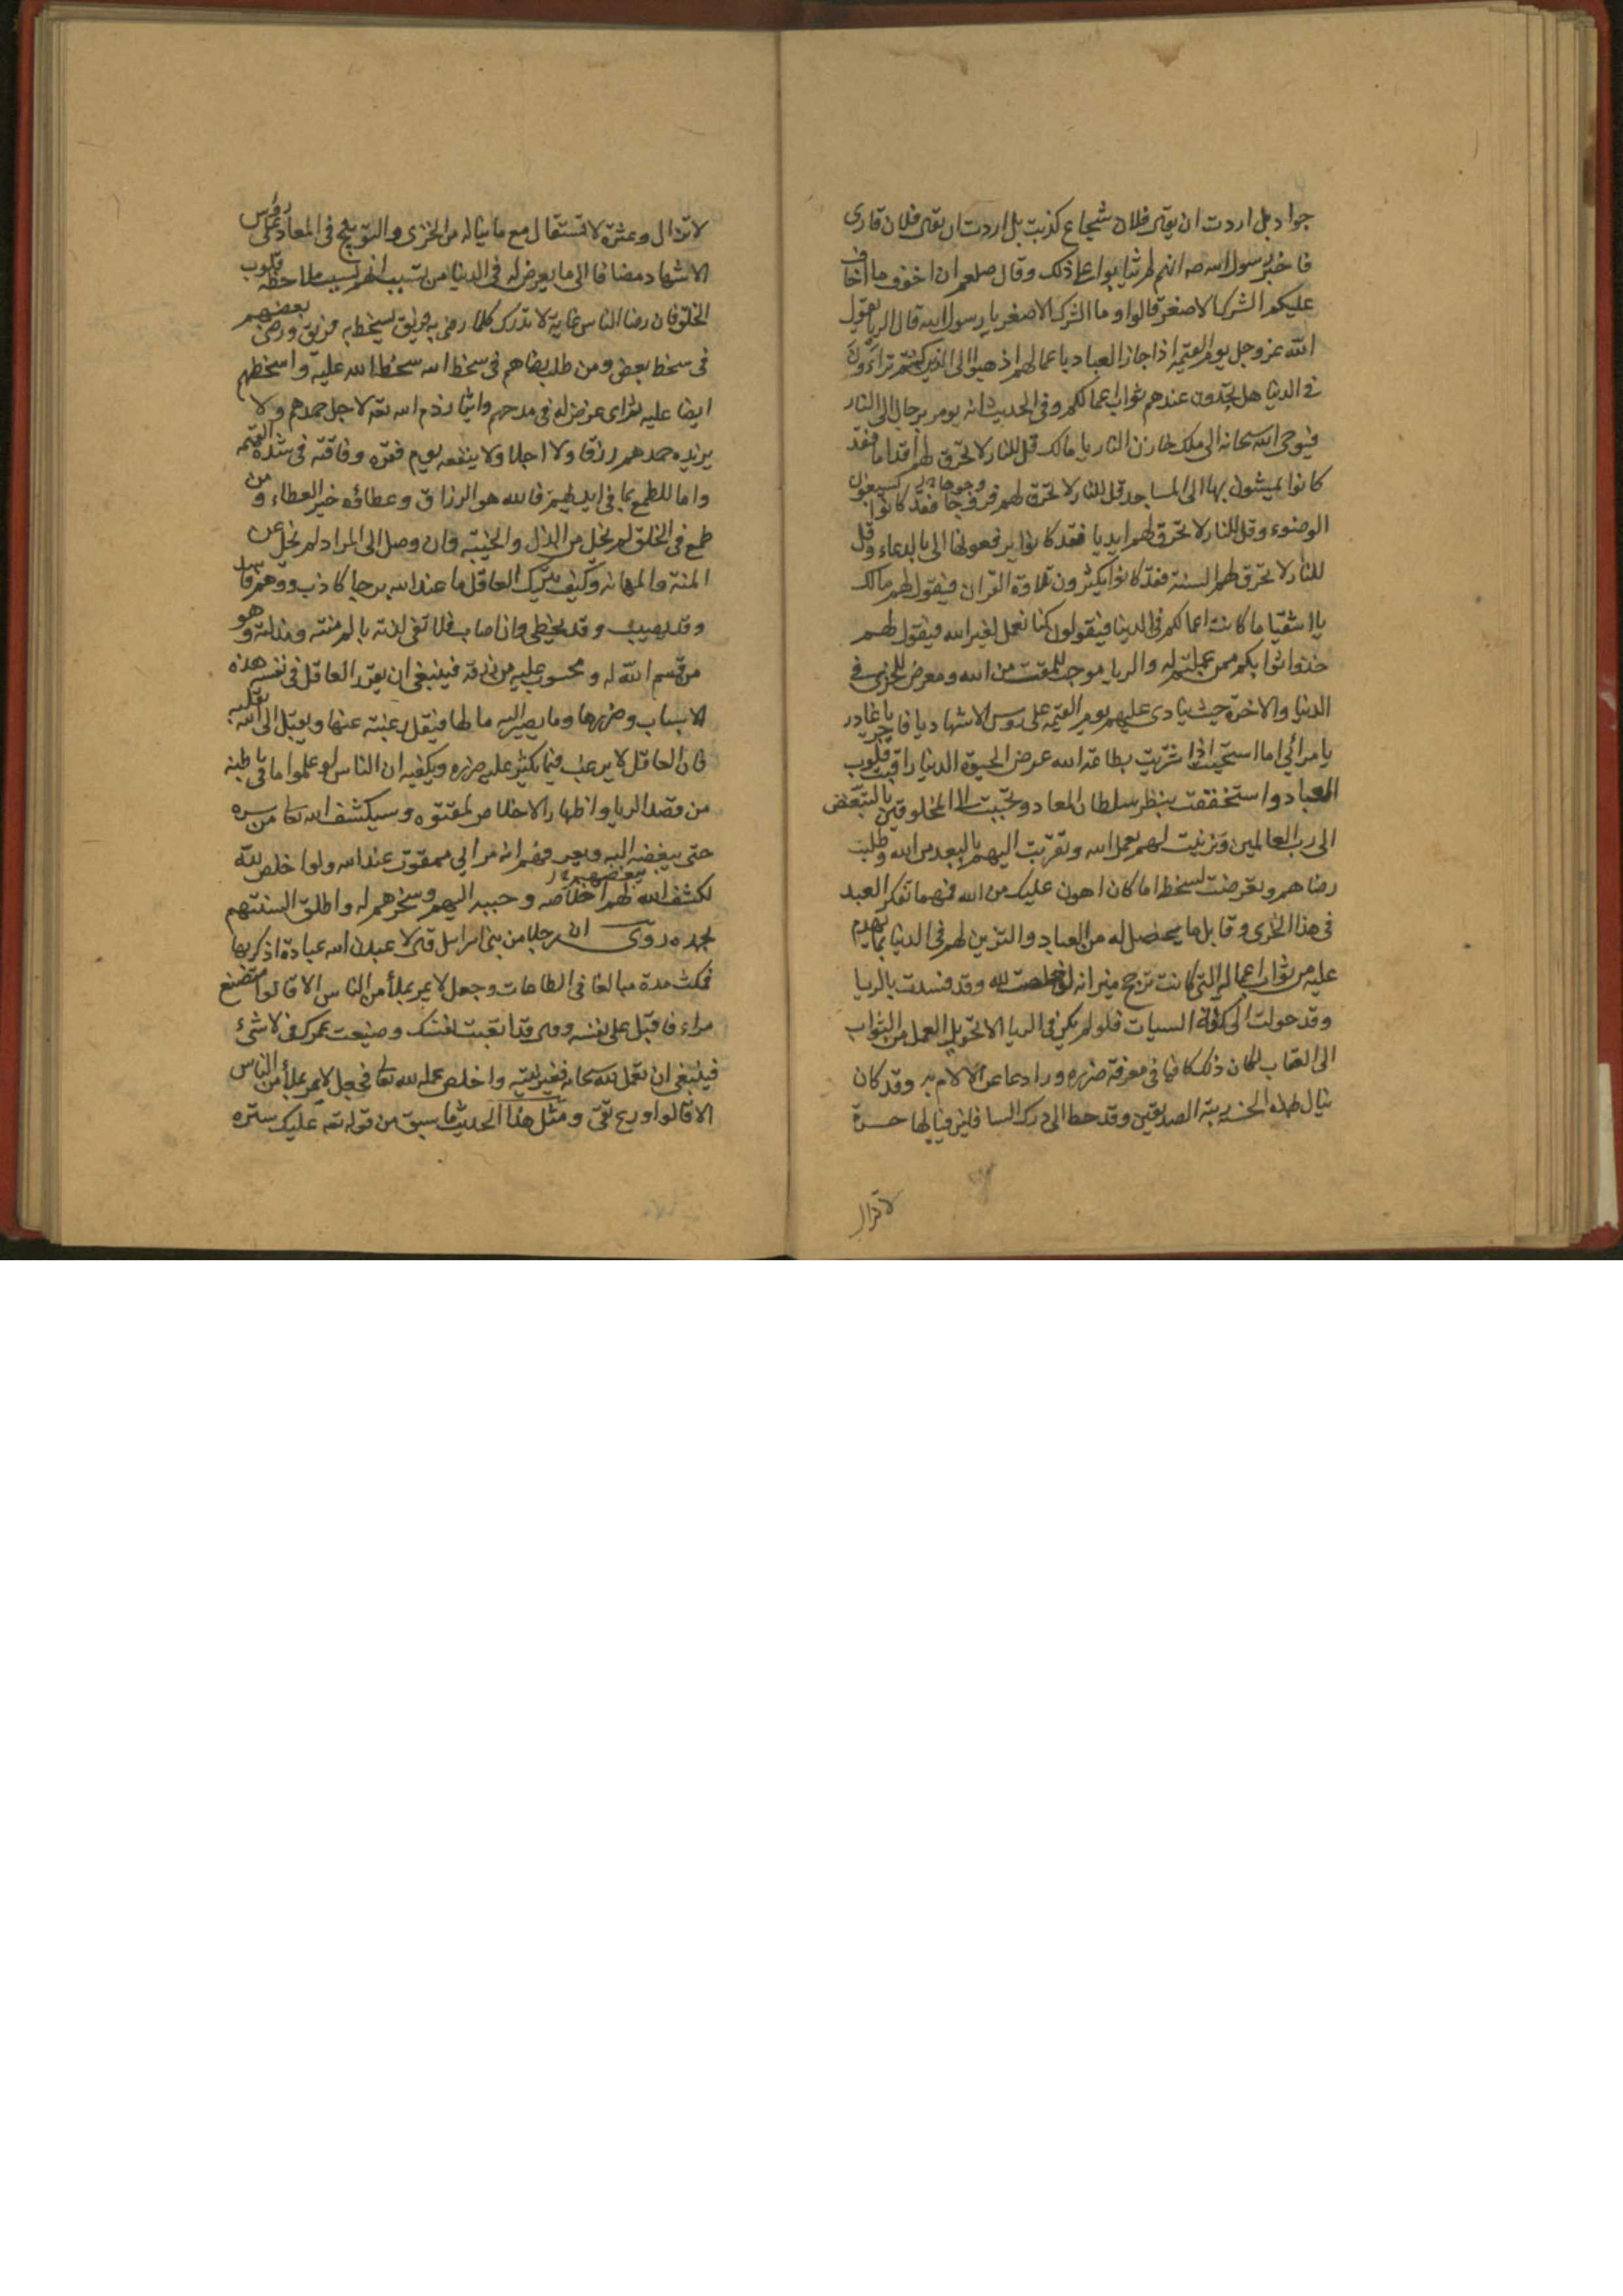 جواد بل اردت ان يقال فلان شجاع كذبت بل اردت ان يقال فلان قارى
فاخبر رسول الله صه انهم لم يثابوا على ذلك وقال صلعم ان اخوف ما اخاف
عليكم الشرك الاصغر قالوا وما الشرك الاصغر يا رسول الله قال الريا يقول
الله عز وجل يوم القيمة اذا جاز العباد باعمالهم اذهبوا الى الذين كنتم تراؤون
فى الدنيا هل تجدون عندهم ثواب اعمالكم وفى الحديث انه يومر برجال الى النار
فيوحى الله سبحانه الى ملك خازن النار يا مالك قل للنار لا تحرق لهم اقداما فقد
كانوا يمشون بها الى المساجد قل للنار لا تحرق لهم وجوها فقد كانوا يسبغون
الوضوء وقل للنار لا تحرق لهم ايديا فقد كانوا يرفعونها الى بالدعاء وقل
للنار لا تحرق لهم السنة فقد كانوا يكثرون تلاوة القران فيقول لهم مالك
يا اشقيا ما كانت اعمالكم فى الدنيا فيقولون كنا نعمل لغير الله فيقول لهم
خذوا ثوابكم ممن عملتم له والريا موجب للمقت من الله ومعرض للخزى فى
الدنيا والاخرة حيث ينادى عليهم يوم القيمة على روس الاشهاد يا فاجر يا غادر
يا مرائي اما استحييت اذا شريت بطاعة الله عرض الحيوة الدنيا راقبت قلوب
العباد واستخففت بنظر سلطان المعاد وتحببت الى المخلوقين بالتبغض
الى رب العالمين وتزينت لهم بعمل الله وتقربت اليهم بالبعد من الله وطلبت
رضاهم وتعرضت لسخطه اما كان اهون عليك من الله فمهما تفكر العبد
فى هذا الخزى وقابل ما يحصل له من العباد والتزين لهم فى الدنيا بما يهدم
عليه من ثواب اعماله التى كانت ترجح ميزانه لو خلصت لله وقد فسدت بالريا
وقد حولت الى كفة السيات فلو لم يكن فى الريا الا تحويل العمل من الثواب
الى العقاب لكان ذلك كافيا فى معرفة ضرره ورادعا عن الالمام به وقد كان
ينال بهذه الحسنة رتبة الصديقين وقد حط الى درك السافلين فيا لها حسرة
لا تزال
لا تزال وعثرة لا تستقال مع ما يناله من الخزى والتوبيخ فى المعاد على رؤس
الاشهاد مضافا الى ما يعرض له فى الدنيا من بسبب ملاحظة قلوب
الخلق فان رضا الناس غاية لا تدرك كلما رضى به فريق يسخط به فريق ورضى بعضهم
فى سخط بعض ومن طلب رضاهم فى سخط الله سخط الله عليه واسخطهم
ايضا عليه ثم اى غرض له فى مدحهم وايثار ذم الله تعه لاجل حمدهم ولا
يزيده حمدهم رزقا ولا اجلا ولا ينفعه يوم فقره وفاقته فى شدة القيمة
واما للطمع بما فى ايديهم فالله هو الرزاق وعطاؤه خير العطاء ومن
طمع فى الخلق لم يخل من الذل والخيبة وان وصل الى المراد لم يخل عن
المنة والمهانة وكيف يترك العاقل ما عند الله برجا كاذب ووهم فاسد
وقد يصيب وقد يخطى واذا صاب فلا تفى لذته بالم منته ومذلته وهو
من قسم الله له ومحسوب عليه من رزقه فينبغى ان يقرر العاقل فى نفسه هذه
الاسباب وضررها وما يصير اليه مالها فيقل رغبته عنها ويقبل الى الله بقلبه
فان العاقل لا يرغب فيما يكثر عليه ضرره ويكفيه ان الناس لو علموا ما فى باطنه
من قصد الريا واظهار الاخلاص لمقتوه وسيكشف الله تعا من سره
حتى يبغضه اليهم ويعرفهم انه مرائي ممقوت عند الله ولو اخلص لله
لكشف الله لهم اخلاصه وحببه اليهم وسخرهم له واطلق السنتهم
بحمده روى ان رجلا من بنى اسرائيل قال لاعبدن الله عبادة اذكر بها
فمكث مدة مبالغا فى الطاعات وجعل لا يمر بملأ من الناس الا قالوا متصنع
مراء فاقبل على نفسه وقال قد اتعبت نفسك وضيعت عمرك فى لا شىء
فينبغى ان تعمل لله سبحانه فغير نيته واخلص عمله لله تعا فجعل لا يمر بملأ من الناس
الا قالوا ورع تقى ومثل هذا الحديث ما سبق من قوله تعه عليك ستره